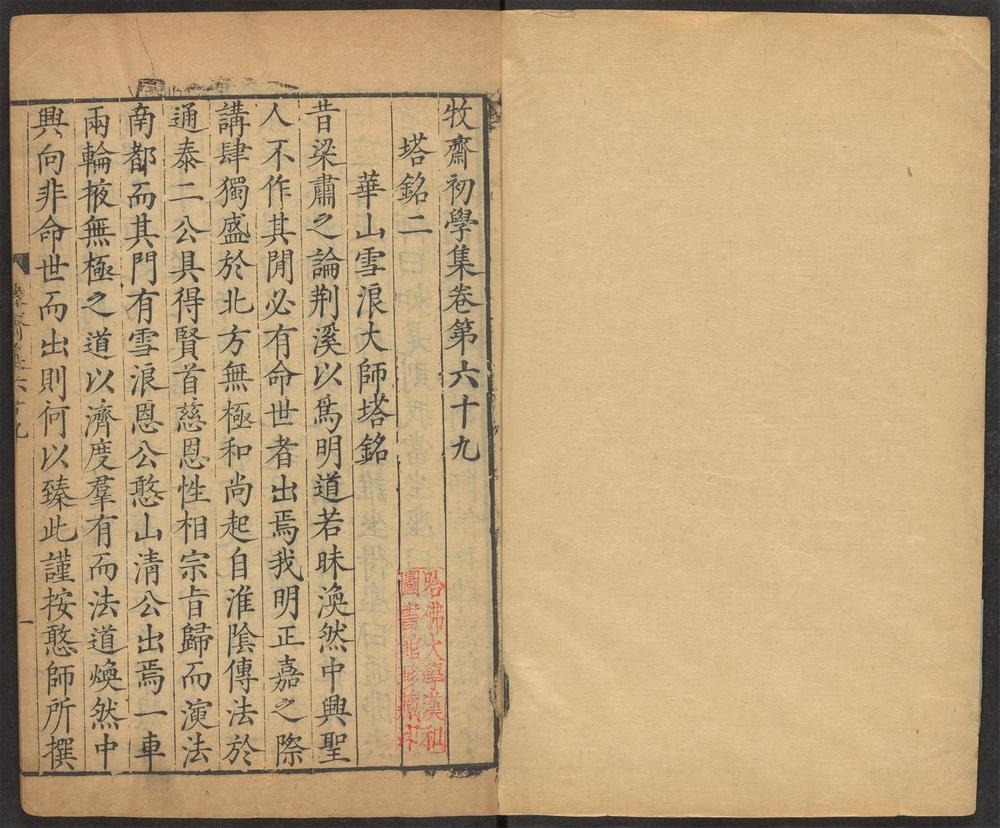 牧齋初學集卷第六十九
塔銘二
華山雪浪大師塔銘
昔梁肅之論荆溪以爲明道若昧渙然中興聖
人不作其閒必有命世者出焉我明正嘉之際
講肆獨盛於北方無極和尚起自淮陰傳法於
通泰二公具得賢首慈恩性相宗旨歸而演法
南都而其門有雪浪恩公憨山清公出焉一車
兩輪掖無極之道以濟度羣有而法道煥然中
興向非命世而出則何以臻此謹按憨師所撰
一
哈佛大學漢和
圖書館珍藏印